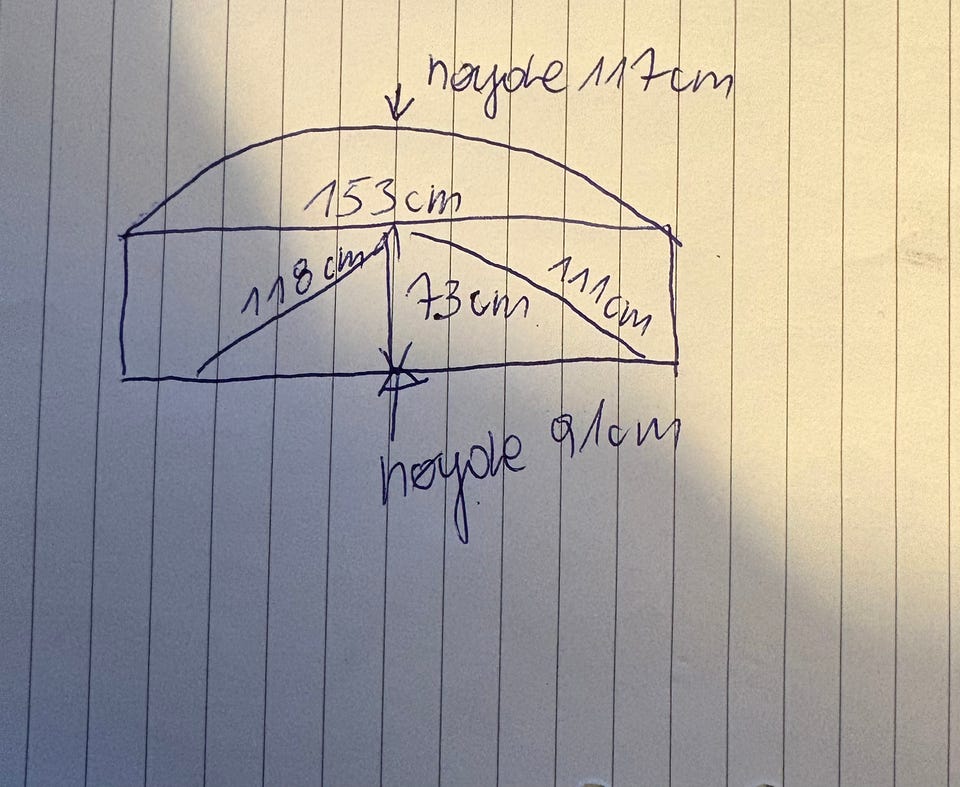 høyde 117cm
153cm
118cm
73cm
111cm
høyde 91cm